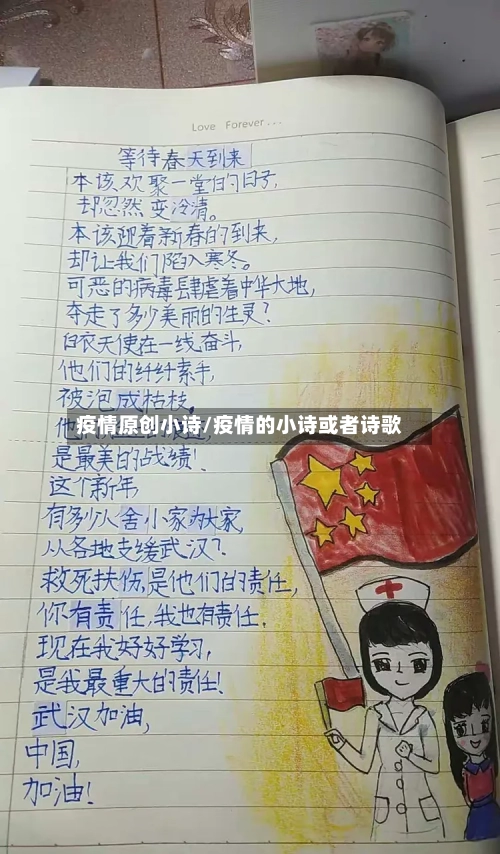 Love Forever...
等待春天到来
本该欢聚一堂的日子,
却忽然变冷清。
本该迎着新春的到来,
却让我们陷入寒冬。
可恶的病毒肆虐着中华大地,
夺走了多少美丽的生灵?
白衣天使在一线奋斗,
他们的纤纤素手,
被泡成枯枝,
疫情原创小诗/疫情的小诗或者诗歌
是最美的战绩!
这个新年,
有多少人舍小家为大家,
从各地支援武汉?
救死扶伤,是他们的责任,
你有责任,我也有责任.
现在我好好学习,
是我最重大的责任!
武汉加油,
中国,
加油!